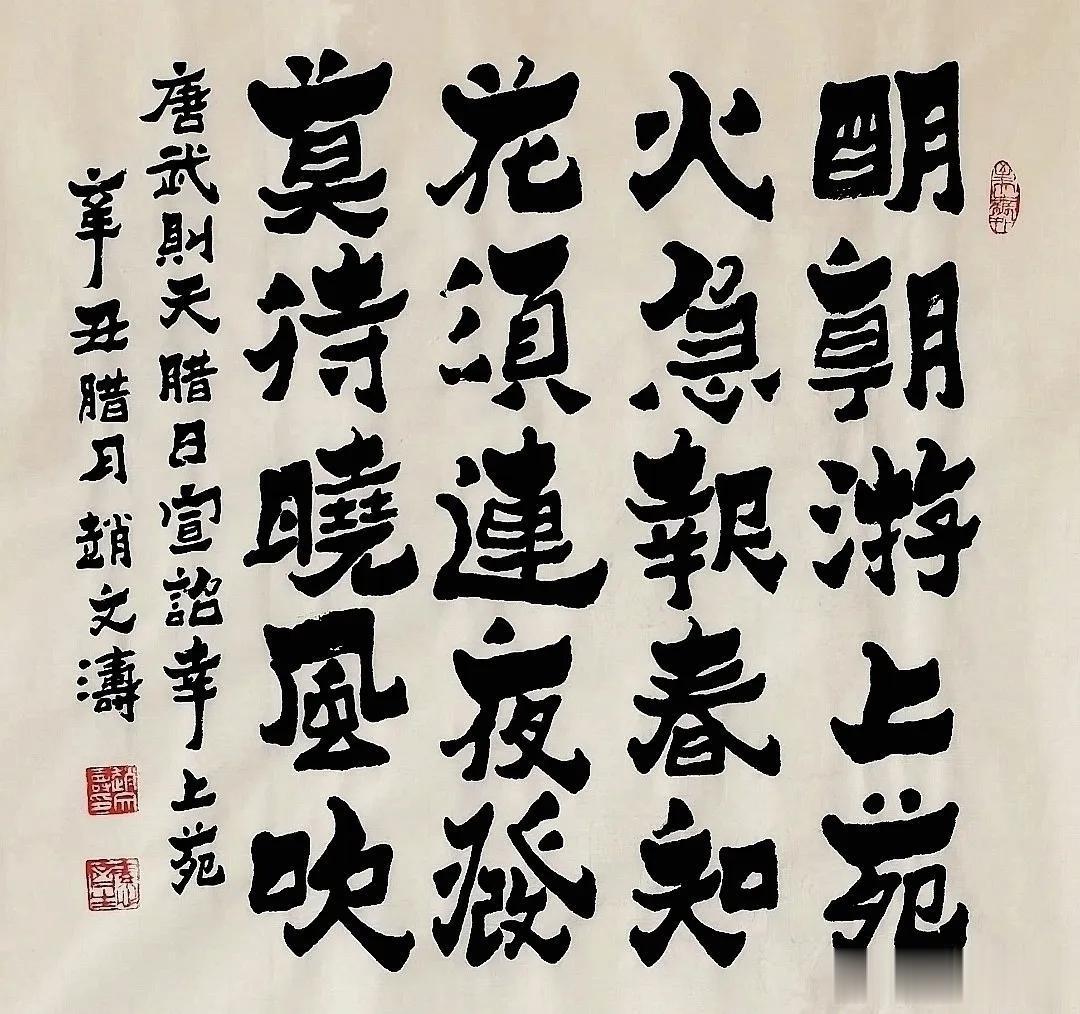 明朝游上苑
火急報春知
花須連夜發
莫待曉風吹
唐武則天腊日宣詔幸上苑
辛丑腊月趙文濤